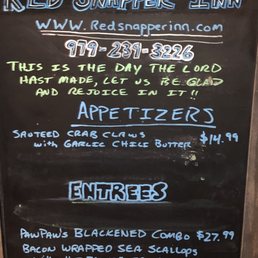 RED SNAPPER INN
WWW.Redsnapperinn.com
979-239-3226
THIS IS THE DAY THE LORD
HAST MADE, LET US BE GLAD
AND REJOICE IN IT!!
APPETIZERS
SAUTEED CRAB CLAWS
with GARLIC CHILI BUTTER $14.99
ENTREES
PAWPAW'S BLACKENED COMBO $27.99
BACON WRAPPED SEA SCALLOPS